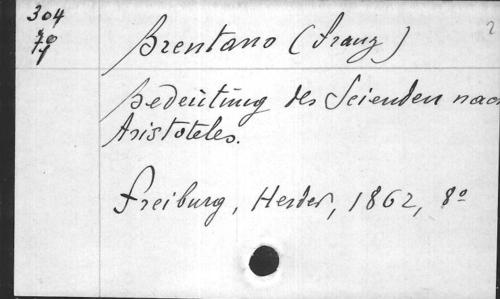 304
70
1
Brentano (Franz)
2
Bedeutung des Seienden nach
Aristoteles.
Freiburg, Herder, 1862, 8°